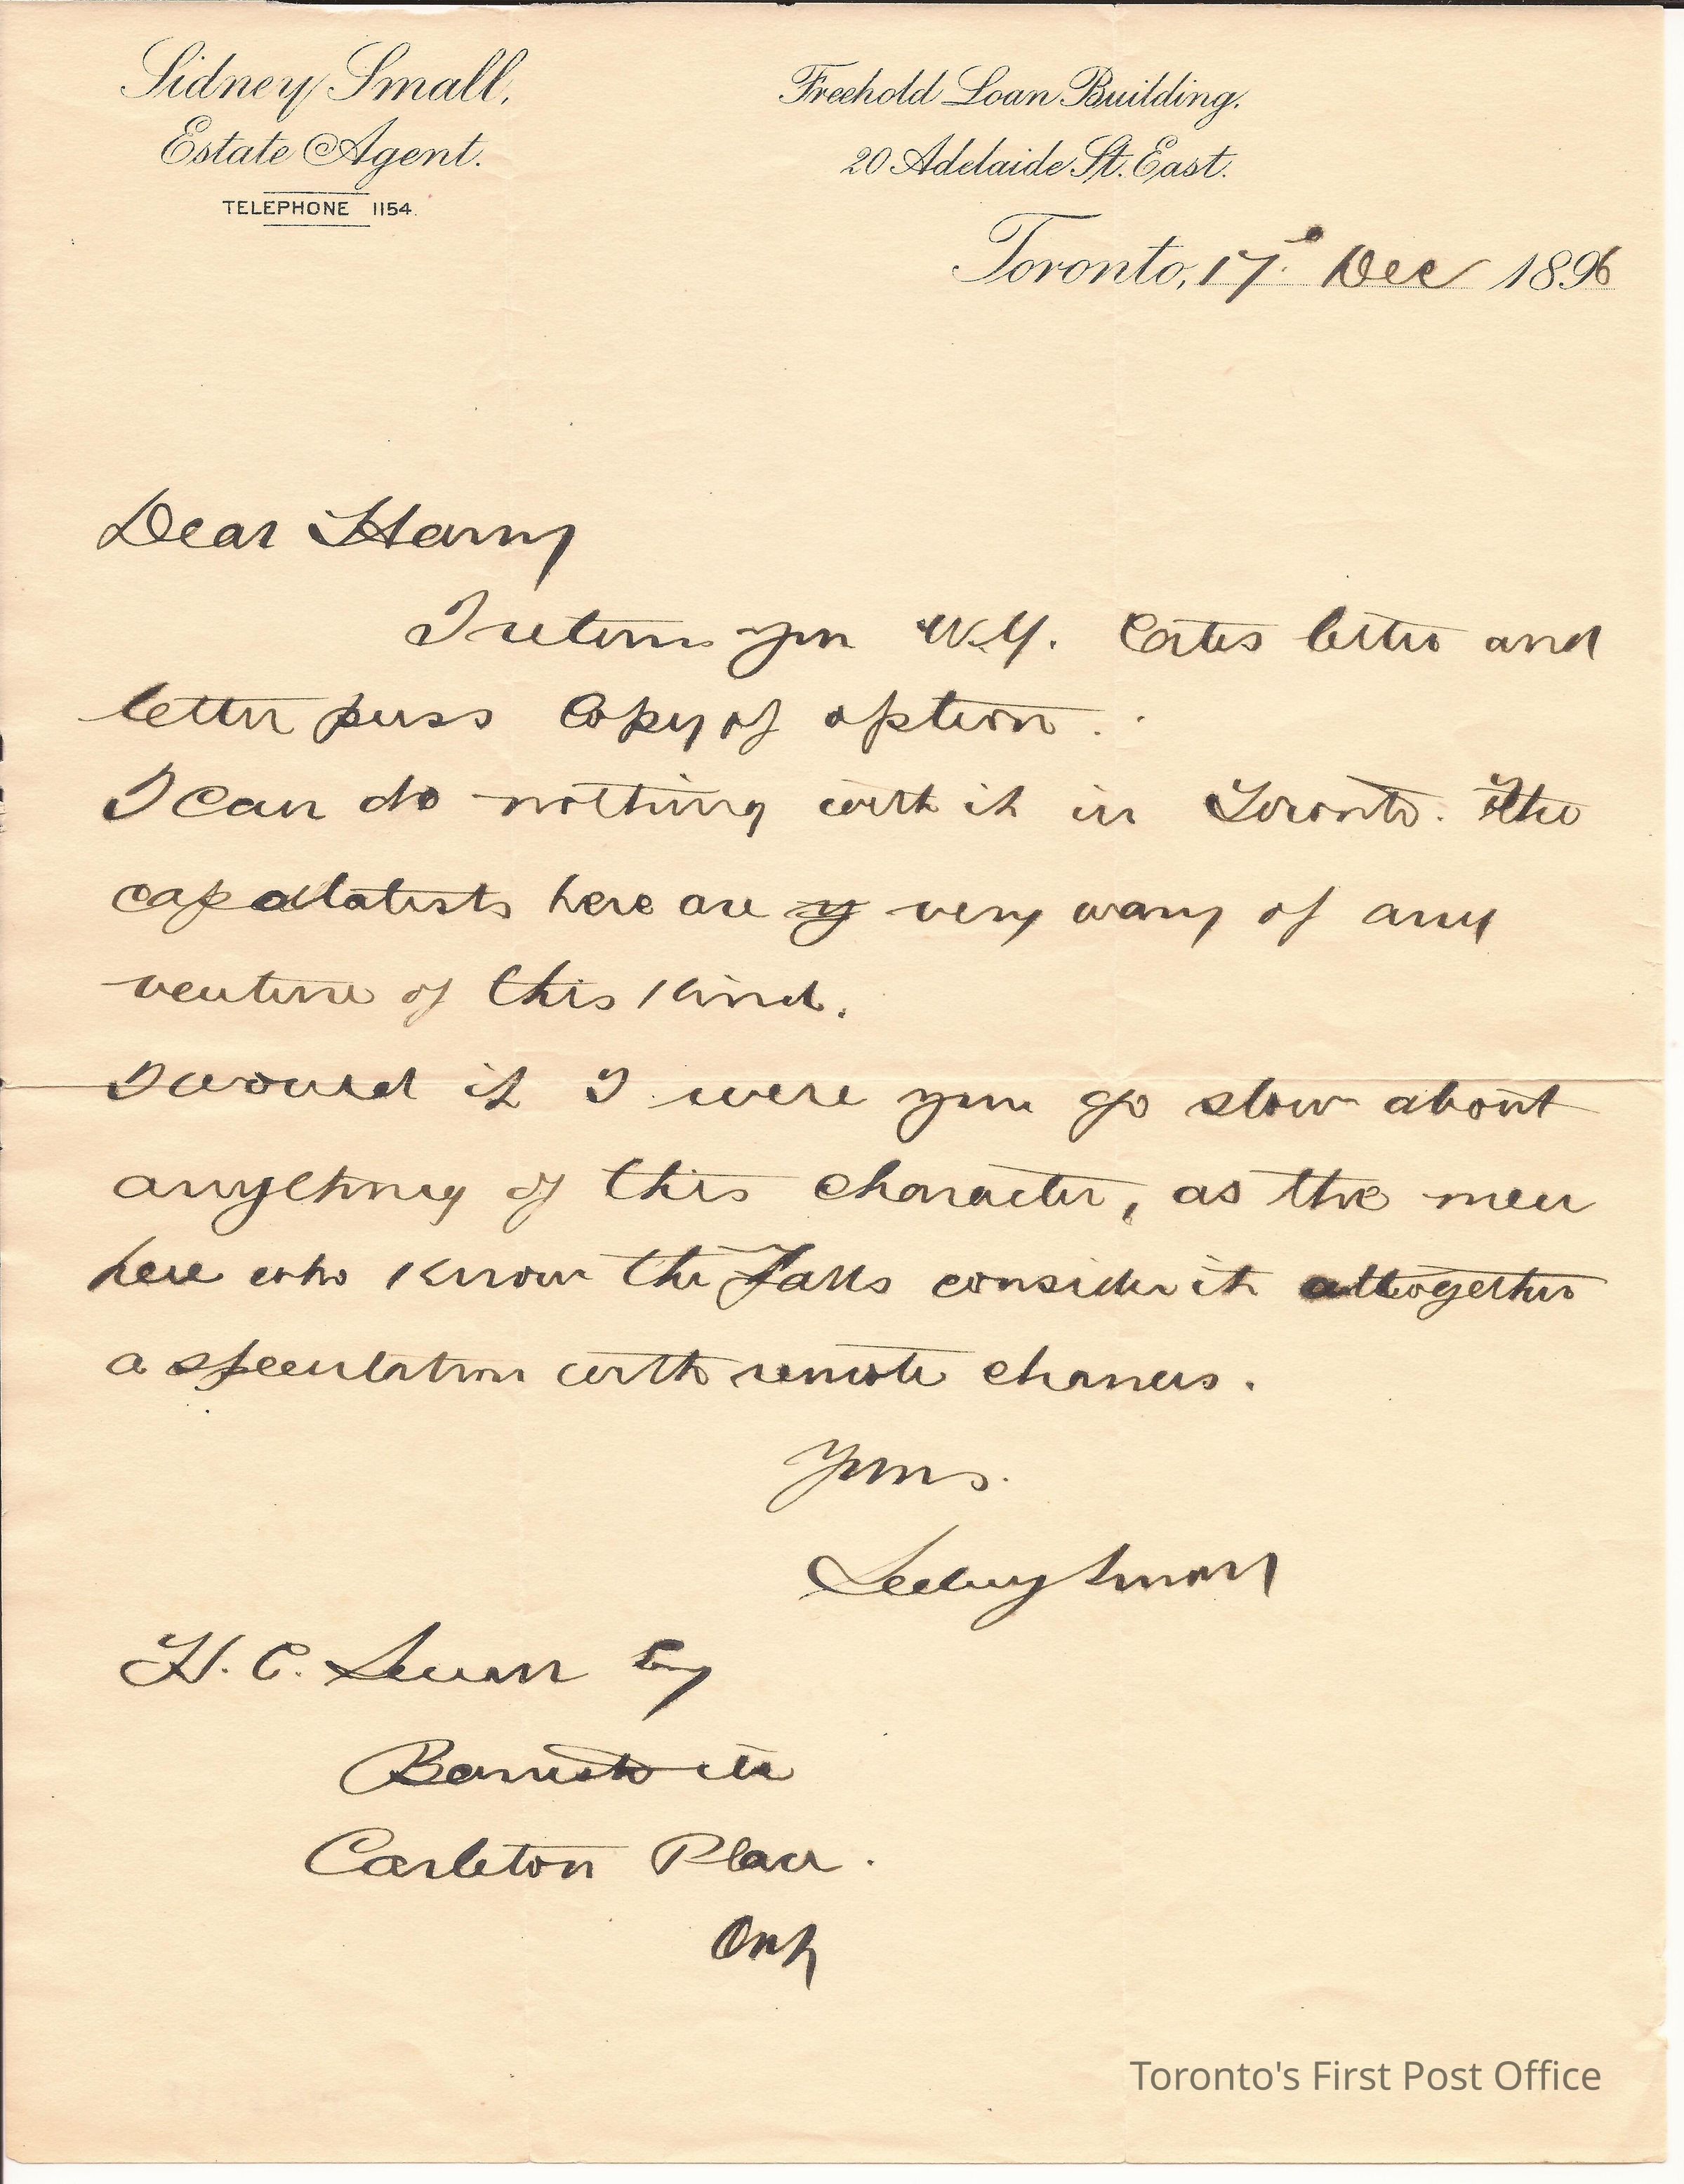 Sidney Small,
Estate Agent.
TELEPHONE 1154.
Freehold Loan Building.
20 Adelaide St. East.
Toronto, 17 Dec 1896
Dear Harry
I return you W.Y. letter and
letter press Copy of option.
I can do nothing with it in Toronto. The
capatalatists here are very wary of any
venture of this kind.
I would if I were you go slow about
anything of this character, as the men
here who know the Falls consider it altogether
a speculation with remote chances.
Yours.
Sidney Small
H. C. Esq
Barrister etc
Carleton Place.
Ont
Toronto's First Post Office